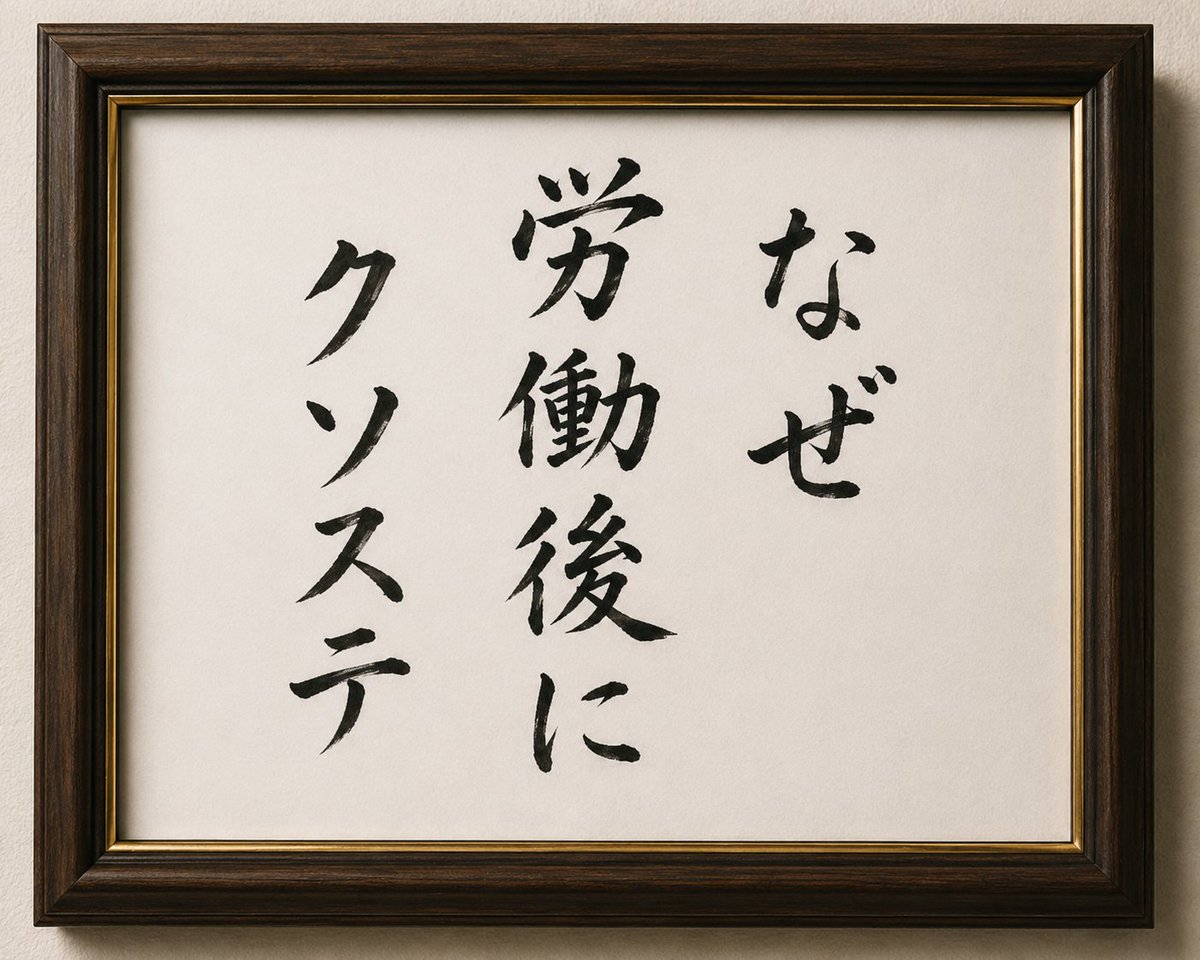 なぜ
労働後に
クソステ